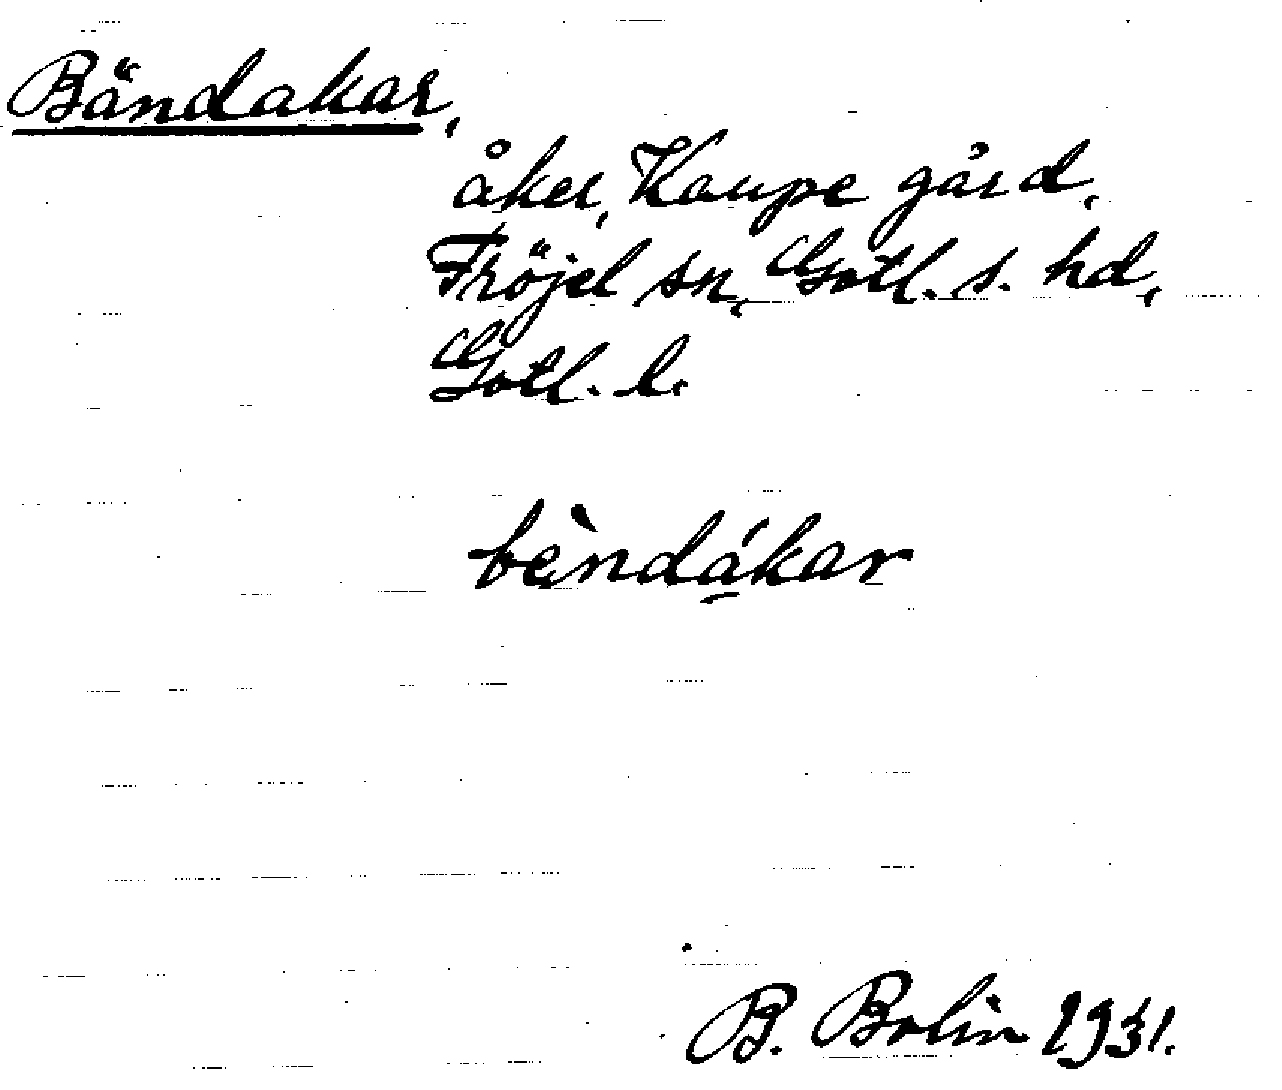 Bändakar,
åker, Kaupe gård,
Fröjel sn, Gotl. s. hd,
Gotl. l.
bèndákar
B. Bolin 1931.